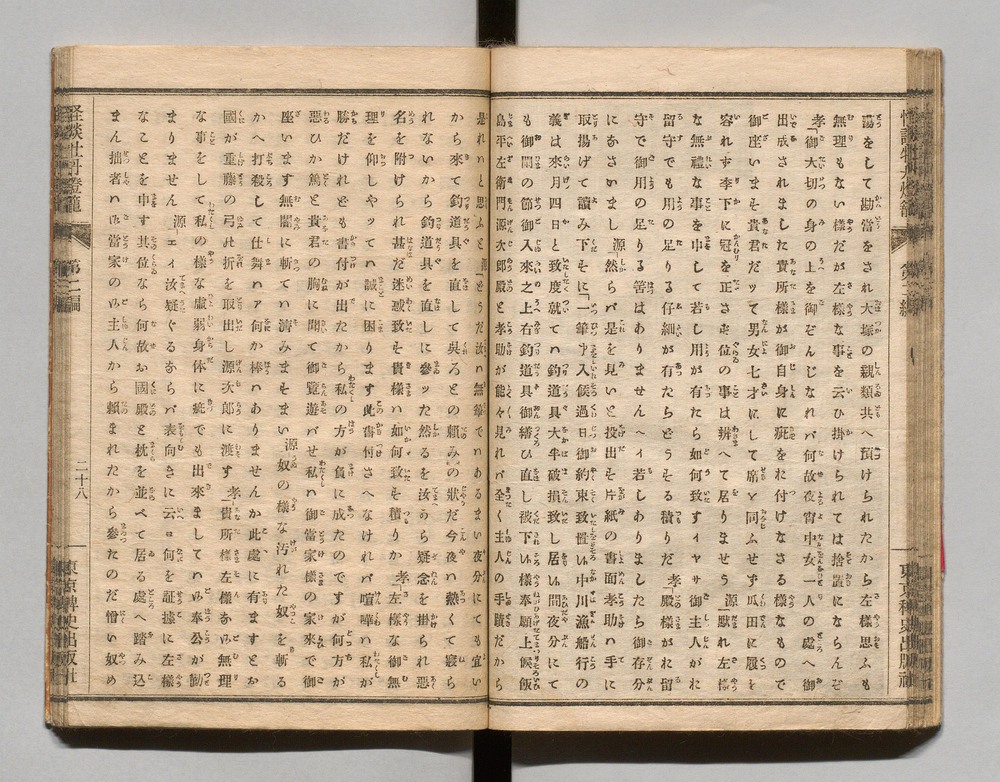 怪談牡丹燈籠　第二編
東京稗史出版社
蕩をして勘當をされ大塚の親類共へ預けられたから左様思ふも
無理もない様だが左様な事を云ひ掛けられては捨置にならんぞ
孝「御大切の身の上を御ぞんじなれバ何故夜宵中女一人の處へ御
出成されました貴所様が御自身に疵をお付けなさる様なもので
御座います貴君だッて男女七才にして席を同ふせず瓜田に履を
容れず李下に冠を正さず位の事は辨へて居りませう　源「默れ左様
な無禮な事を申して若し用が有たら如何致すイヤサ御主人がお
留守でも用の足りる仔細が有たらどうする積りだ　孝「殿様がお留
守で御用の足りる筈はありませんヘイ若しありましたら御存分
になさいまし　源「然らバ是を見いと投出す片紙の書面孝助ハ手に
取揚げて讀み下すに「一筆申入候過日御約束致置い中川漁船行の
義は來月四日と致度就てハ釣道具大半破損致し居い間夜分に
も御閑の節御入來之上右釣道具御繕ひ直し被下い様奉願上候飯
島平左衛門源次郎殿と孝助が能々見れバ全く主人の手蹟だから
是れハと思ふと　源「どうだ汝ハ無筆でハあるまい夜分にても宜い
から來て釣道具を直して呉ろとの頼みの狀だ今夜ハ熱くて寝ら
れないから釣道具を直しに參ッた然るを汝から疑念を掛られ悪
名を附けられ甚だ迷惑致す貴様ハ如何致す積りか　孝「左様な御無
理を仰しやッてハ誠に困ります此書付さへなけれバ喧嘩ハ私が
勝だけれども書付が出たから私の方が負に成たのですが何方が
悪ひか篤と貴君の胸に聞て御覧遊バせ私ハ御當家様の家來で御
座います無闇に斬てハ濟みますまい　源「奴の様な汚れた奴を斬る
かヘ打殺して仕舞ハアか何か棒ハありませんか此處に有ますとお
國が重藤の弓の折を取出し源次郎に渡す　孝「貴所様左様な御無理
な事をして私の様な虚弱身体に疵でも出來ましてハ御奉公が勤
まりません　源「エイ汝疑ぐるならバ表向きに云へヨ何を証據に左様
なことを申す其位なら何故お國殿と枕を並べて居る處へ踏み込
まん拙者ハ御當家の御主人から頼まれたから參たのだ憎い奴め
怪談牡丹燈籠　第二編
二十八
東京稗史出版社